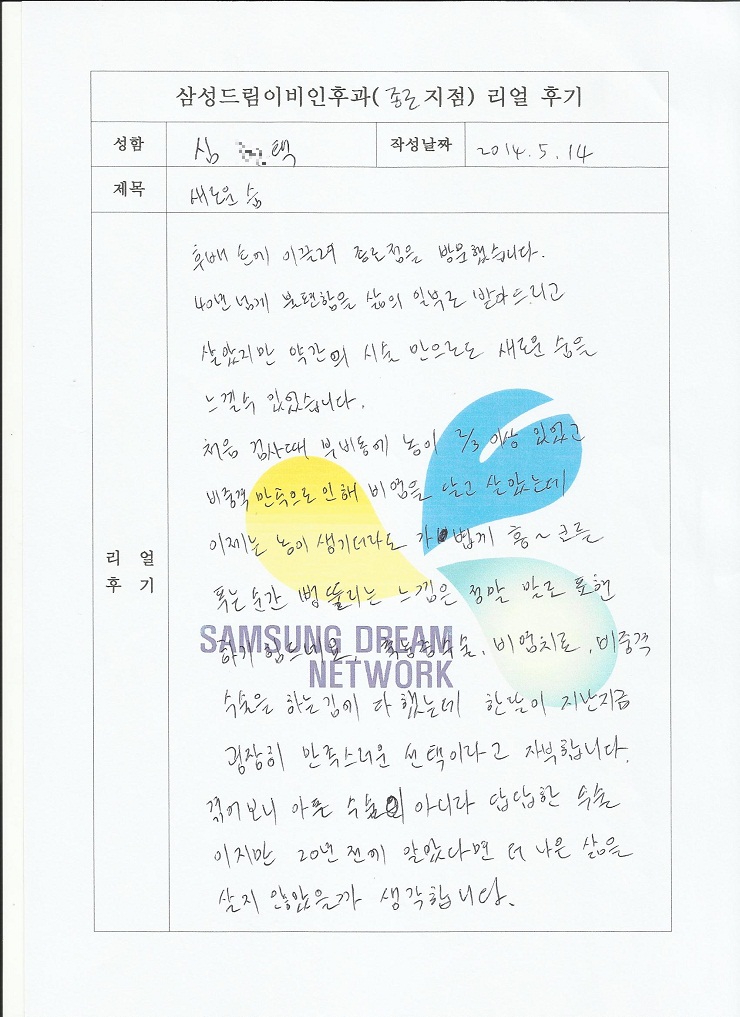 삼성드림이비인후과(종로지점) 리얼 후기
성함 심 택 작성날짜 2014. 5. 14
제목 새로운 숨
후배 손에 이끌려 종로점을 방문했습니다.
40년 넘게 불편함을 삶의 일부로 받아드리고
살았지만 약간의 시술 만으로도 새로운 숨을
느낄수 있었습니다.
처음 검사때 부비동에 농이 2/3 이상 있었고
비중격 만곡으로 인해 비염을 달고 살았는데
이제는 농이 생기더라도 가볍게 흥~ 코를
리 얼
후 기
푸는 순간 뻥 뚫리는 느낌은 정말 말로 표현
하기 힘드네요. 축농증수술, 비염치료, 비중격
SAMSUNG DREAM
NETWORK
수술을 하는김에 다 했는데 한달이 지난지금
굉장히 만족스러운 선택이라고 자부합니다.
겪어보니 아픈 수술이 아니라 답답한 수술
이지만 20년 전에 알았다면 더 나은 삶을
살지 않았을까 생각합니다.